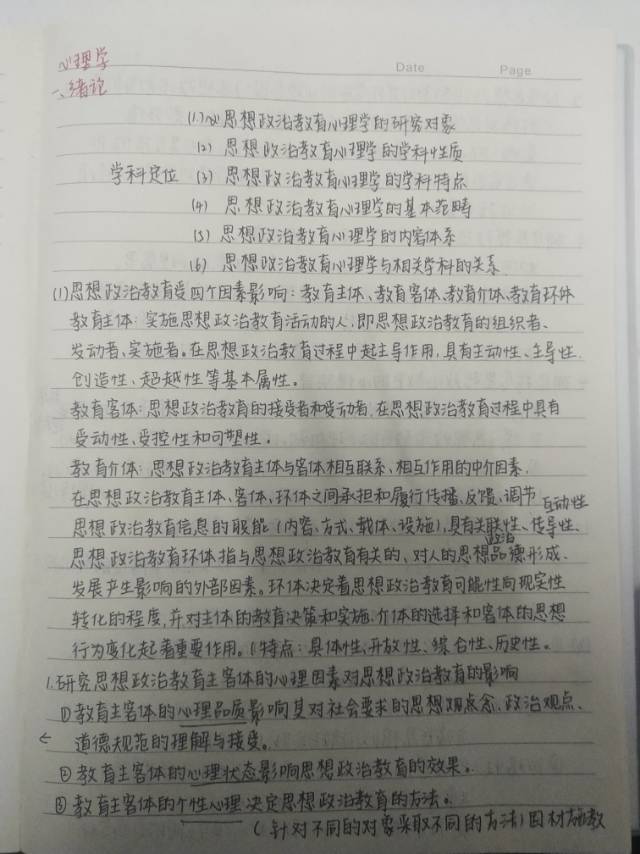 心理学
Date Page
一、绪论
(1)心思想政治教育心理学的研究对象
(2) 思想政治教育心理学的学科性质
学科定位 (3) 思想政治教育心理学的学科特点
(4) 思想政治教育心理学的基本范畴
(5) 思想政治教育心理学的内容体系
(6) 思想政治教育心理学与相关学科的关系
(1)思想政治教育受四个因素影响：教育主体、教育客体、教育介体、教育环体
教育主体：实施思想政治教育活动的人，即思想政治教育的组织者、
发动者、实施者。在思想政治教育过程中起主导作用，具有主动性、主导性、
创造性、超越性等基本属性。
教育客体：思想政治教育的接受者和受动者，在思想政治教育过程中具有
受动性、受控性和可塑性。
教育介体：思想政治教育主体与客体相互联系、相互作用的中介因素，
在思想政治教育主体、客体、环体之间承担和履行传播、反馈、调节 互动性
思想政治教育信息的职能（内容、方式、载体、设施），具有关联性、传导性、
政治
思想政治教育环体指与思想政治教育有关的、对人的思想品德形成、
发展产生影响的外部因素。环体决定着思想政治教育可能性向现实性
转化的程度，并对主体的教育决策和实施、介体的选择和客体的思想
行为变化起着重要作用。（特点：具体性、开放性、综合性、历史性。
1.研究思想政治教育主客体的心理因素对思想政治教育的影响
①教育主客体的心理品质影响其对社会要求的思想观点念、政治观点、
道德规范的理解与接受。
②教育主客体的心理状态影响思想政治教育的效果。
③教育主客体的个性心理决定思想政治教育的方法。
（针对不同的对象采取不同的方法）因材施教